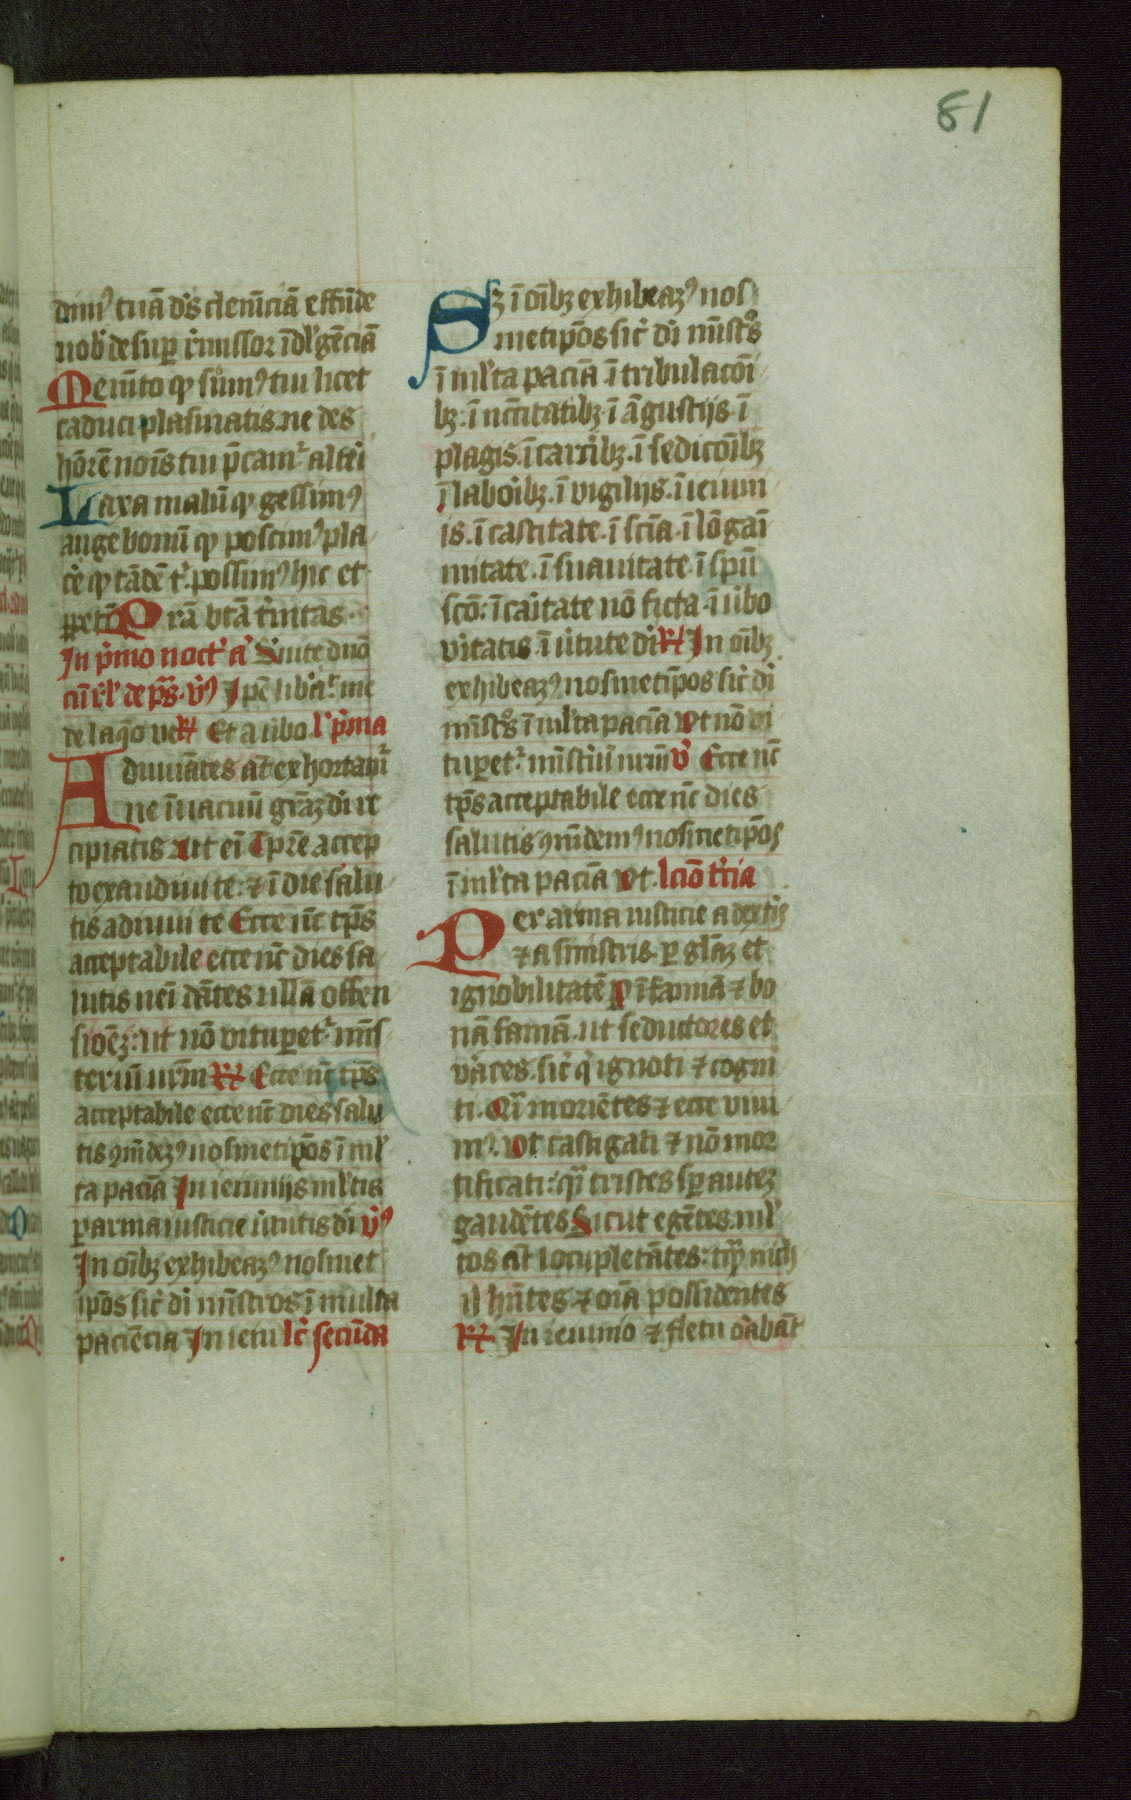 81
dim⁹ tuā dˢ clem̄ciā effūde
nob̾ desuꝑ r̾missor īdl̾gēciā
Mem̄to ꝙ sum⁹ tui licet
caduci plasmatis. ne des
hōrē noīs tui p̄cam̾ alteri
Laxa malū ꝙ gessim⁹
auge bonū ꝙ poscim⁹ pla
cē ꝙ tādē t̾ possim⁹ hic et
ꝑpetī Prā btā t̾nitas.
In p̾mo noct̾ a̾ Seruite dnō
cū rl̾ de ps̄. v⁹ Ip̄e lib̾a̾ me
de laq̄o ve R Et a ūbo l̾ p̾ma
Adiuuātes āt exhortam̾
ne ī uacuū grāꝫ di re
cipiatis Ait ei̅ Tp̄re accep
to exaudiui te: ⁊ ī die salu
tis adiuui te Ecce nc̄ tp̄s
acceptabile ecce nc̄ dies sa
lutis nei̅ dātes ullā offen
sioēꝫ: ut nō vituꝑet̾ mīs
teriū nrm̄ R Ecce nc̄ tp̄s
acceptabile ecce nc̄ dies salu
tis ꝯm̄deꝫ⁹ nosmetipōs ī ml̾
ta paciā In ieiunijs ml̾tis
ꝑ arma iusticie ūtutis di v⁹
In oīb₃ exhibeaꝫ⁹ nosmet
ipōs sic̾ di mīstros ī multa
paciēcia In ieiu lc̾ secūda
Sꝫ ī oīb₃ exhibeaꝫ⁹ nos
metipōs sic̾ di mīstr̾os
ī ml̾ta paciā ī tribulacōī
b₃. ī nc̄itatib₃ ī āgustijs. ī
plagis. ī carc̾ib₃. ī sedicōīb₃
ī laboīb₃. ī vigilijs. ī ieiuni
is. ī castitate. ī scīa. ī lōgai̅
mitate. ī suauitate. ī spū
scō: ī cai̾tate nō ficta. ī ūbo
v̾itatis. ī ūtute di R In oīb₃
exhibeaꝫ⁹ nosmetipōs sic̾ di
mīstr̾os ī ml̾ta paciā Vt nō vi
tuꝑet̾ mīst̾iū nrm̄ v̾ Ecce nc̄
tp̄s acceptabile ecce nc̄ dies
salutis ꝯm̄dem⁹ nosmetipōs
ī ml̾ta paciā Vt. lcīo t̾cia
Per arma iusticie a dext̾is
⁊ a sinistris. ꝑ glāꝫ et
ignobilitatē ꝑ īfamiā ⁊ bo
nā famā. ut seductores et
v̾aces. sic̾ q̾ ignoti ⁊ cogni
ti. Qi̅ moriētes ⁊ ecce viui
m⁹. Vt castigati ⁊ nō mor
tificati: q̾i tristes sꝑ auteꝫ
gaudētes Sicut egētes. ml̾
tos āt locupletātes: tq̾ nich
il hn̄tes ⁊ oīa possidentes
R In ieiunio ⁊ fletu ōrabāt